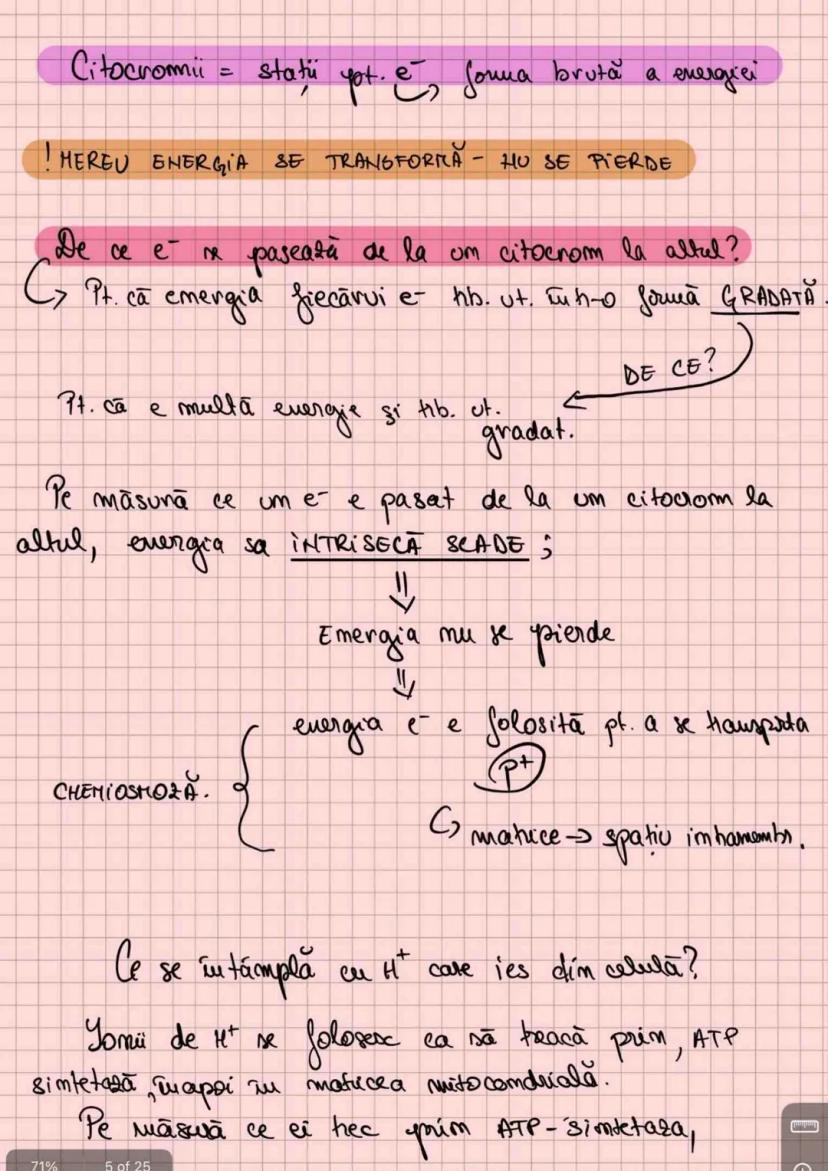 Citocromii = stații pt. e⁻ forma brută a energiei
! MEREU ENERGIA SE TRANSFORMĂ - NU SE PIERDE
De ce e⁻ se pasează de la un citocrom la altul?
Pt. că energia fiecărui e⁻ tb. ut. într-o formă GRADATĂ.
DE CE?
Pt. că e multă energie și tb. ut.
gradat.
Pe măsură ce un e⁻ e pasat de la un citocrom la
altul, energia sa INTRISECĂ SCADE ;
Energia nu se pierde
energia e⁻ e folosită pt. a se transporta
p⁺
CHEMIOSMOZĂ.
matrice → spațiu intramembr.
Ce se întâmplă cu H⁺ care ies din celulă?
Ionii de H⁺ se folosesc ca să treacă prin, ATP
sintetază, înapoi în matricea mitocondrială.
Pe măsură ce ei trec prin ATP-sintetaza,
71% 5 of 25